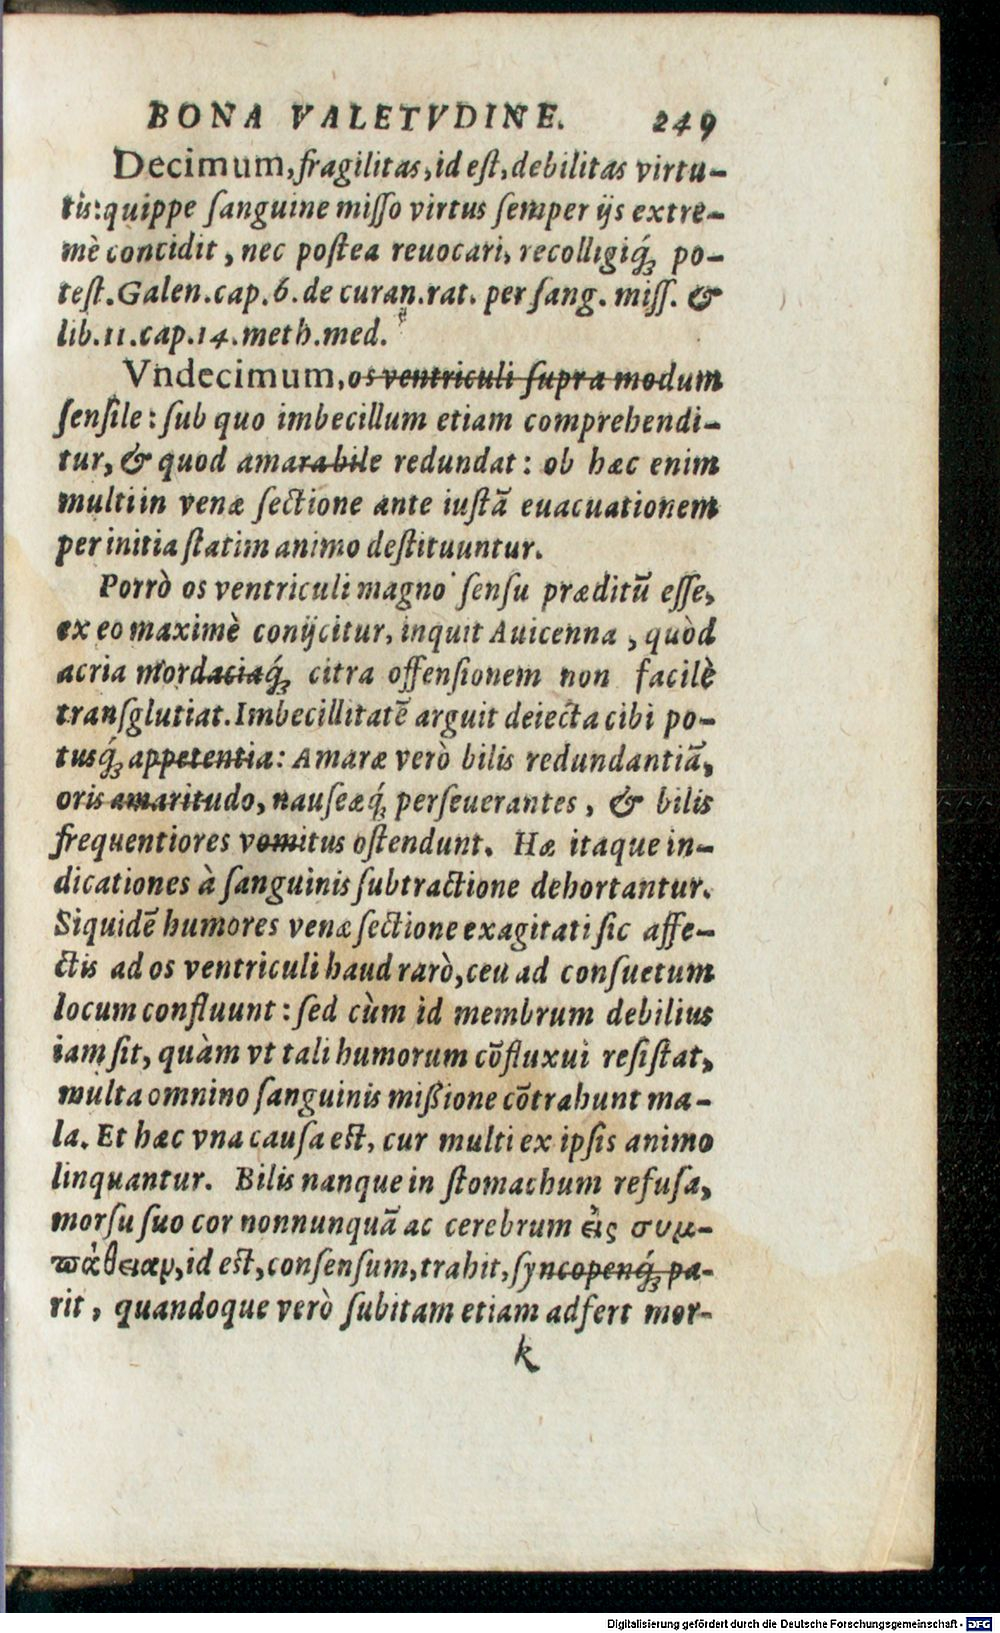 BONA VALETVDINE. 249
Decimum, fragilitas, id est, debilitas virtu-
tis: quippe sanguine misso virtus semper ijs extre-
mè concidit, nec postea reuocari, recolligiq́; po-
test. Galen. cap. 6. de curan. rat. per sang. miss. &
lib. 11. cap. 14. meth. med.
Vndecimum, os ventriculi supra modum
sensile: sub quo imbecillum etiam comprehendi-
tur, & quod amarabile redundat: ob hæc enim
multi in venæ sectione ante iustā euacuationem
per initia statim animo destituuntur.
Porrò os ventriculi magno sensu præditū esse,
ex eo maximè conijcitur, inquit Auicenna, quòd
acria mordaciaq́; citra offensionem non facilè
transglutiat. Imbecillitatē arguit deiecta cibi po-
tusq́; appetentia: Amaræ verò bilis redundantiā,
oris amaritudo, nauseæq́; perseuerantes, & bilis
frequentiores vomitus ostendunt. Hæ itaque in-
dicationes à sanguinis subtractione dehortantur.
Siquidē humores venæ sectione exagitati sic affe-
ctis ad os ventriculi haud rarò, ceu ad consuetum
locum confluunt: sed cùm id membrum debilius
iam sit, quàm vt tali humorum cōfluxui resistat,
multa omnino sanguinis mißione cōtrahunt ma-
la. Et hæc vna causa est, cur multi ex ipsis animo
linquantur. Bilis nanque in stomachum refusa,
morsu suo cor nonnunquā ac cerebrum εἰς συμ-
πάθειαν, id est, consensum, trahit, syncopenq́; pa-
rit, quandoque verò subitam etiam adfert mor-
k
Digitalisierung gefördert durch die Deutsche Forschungsgemeinschaft - DFG